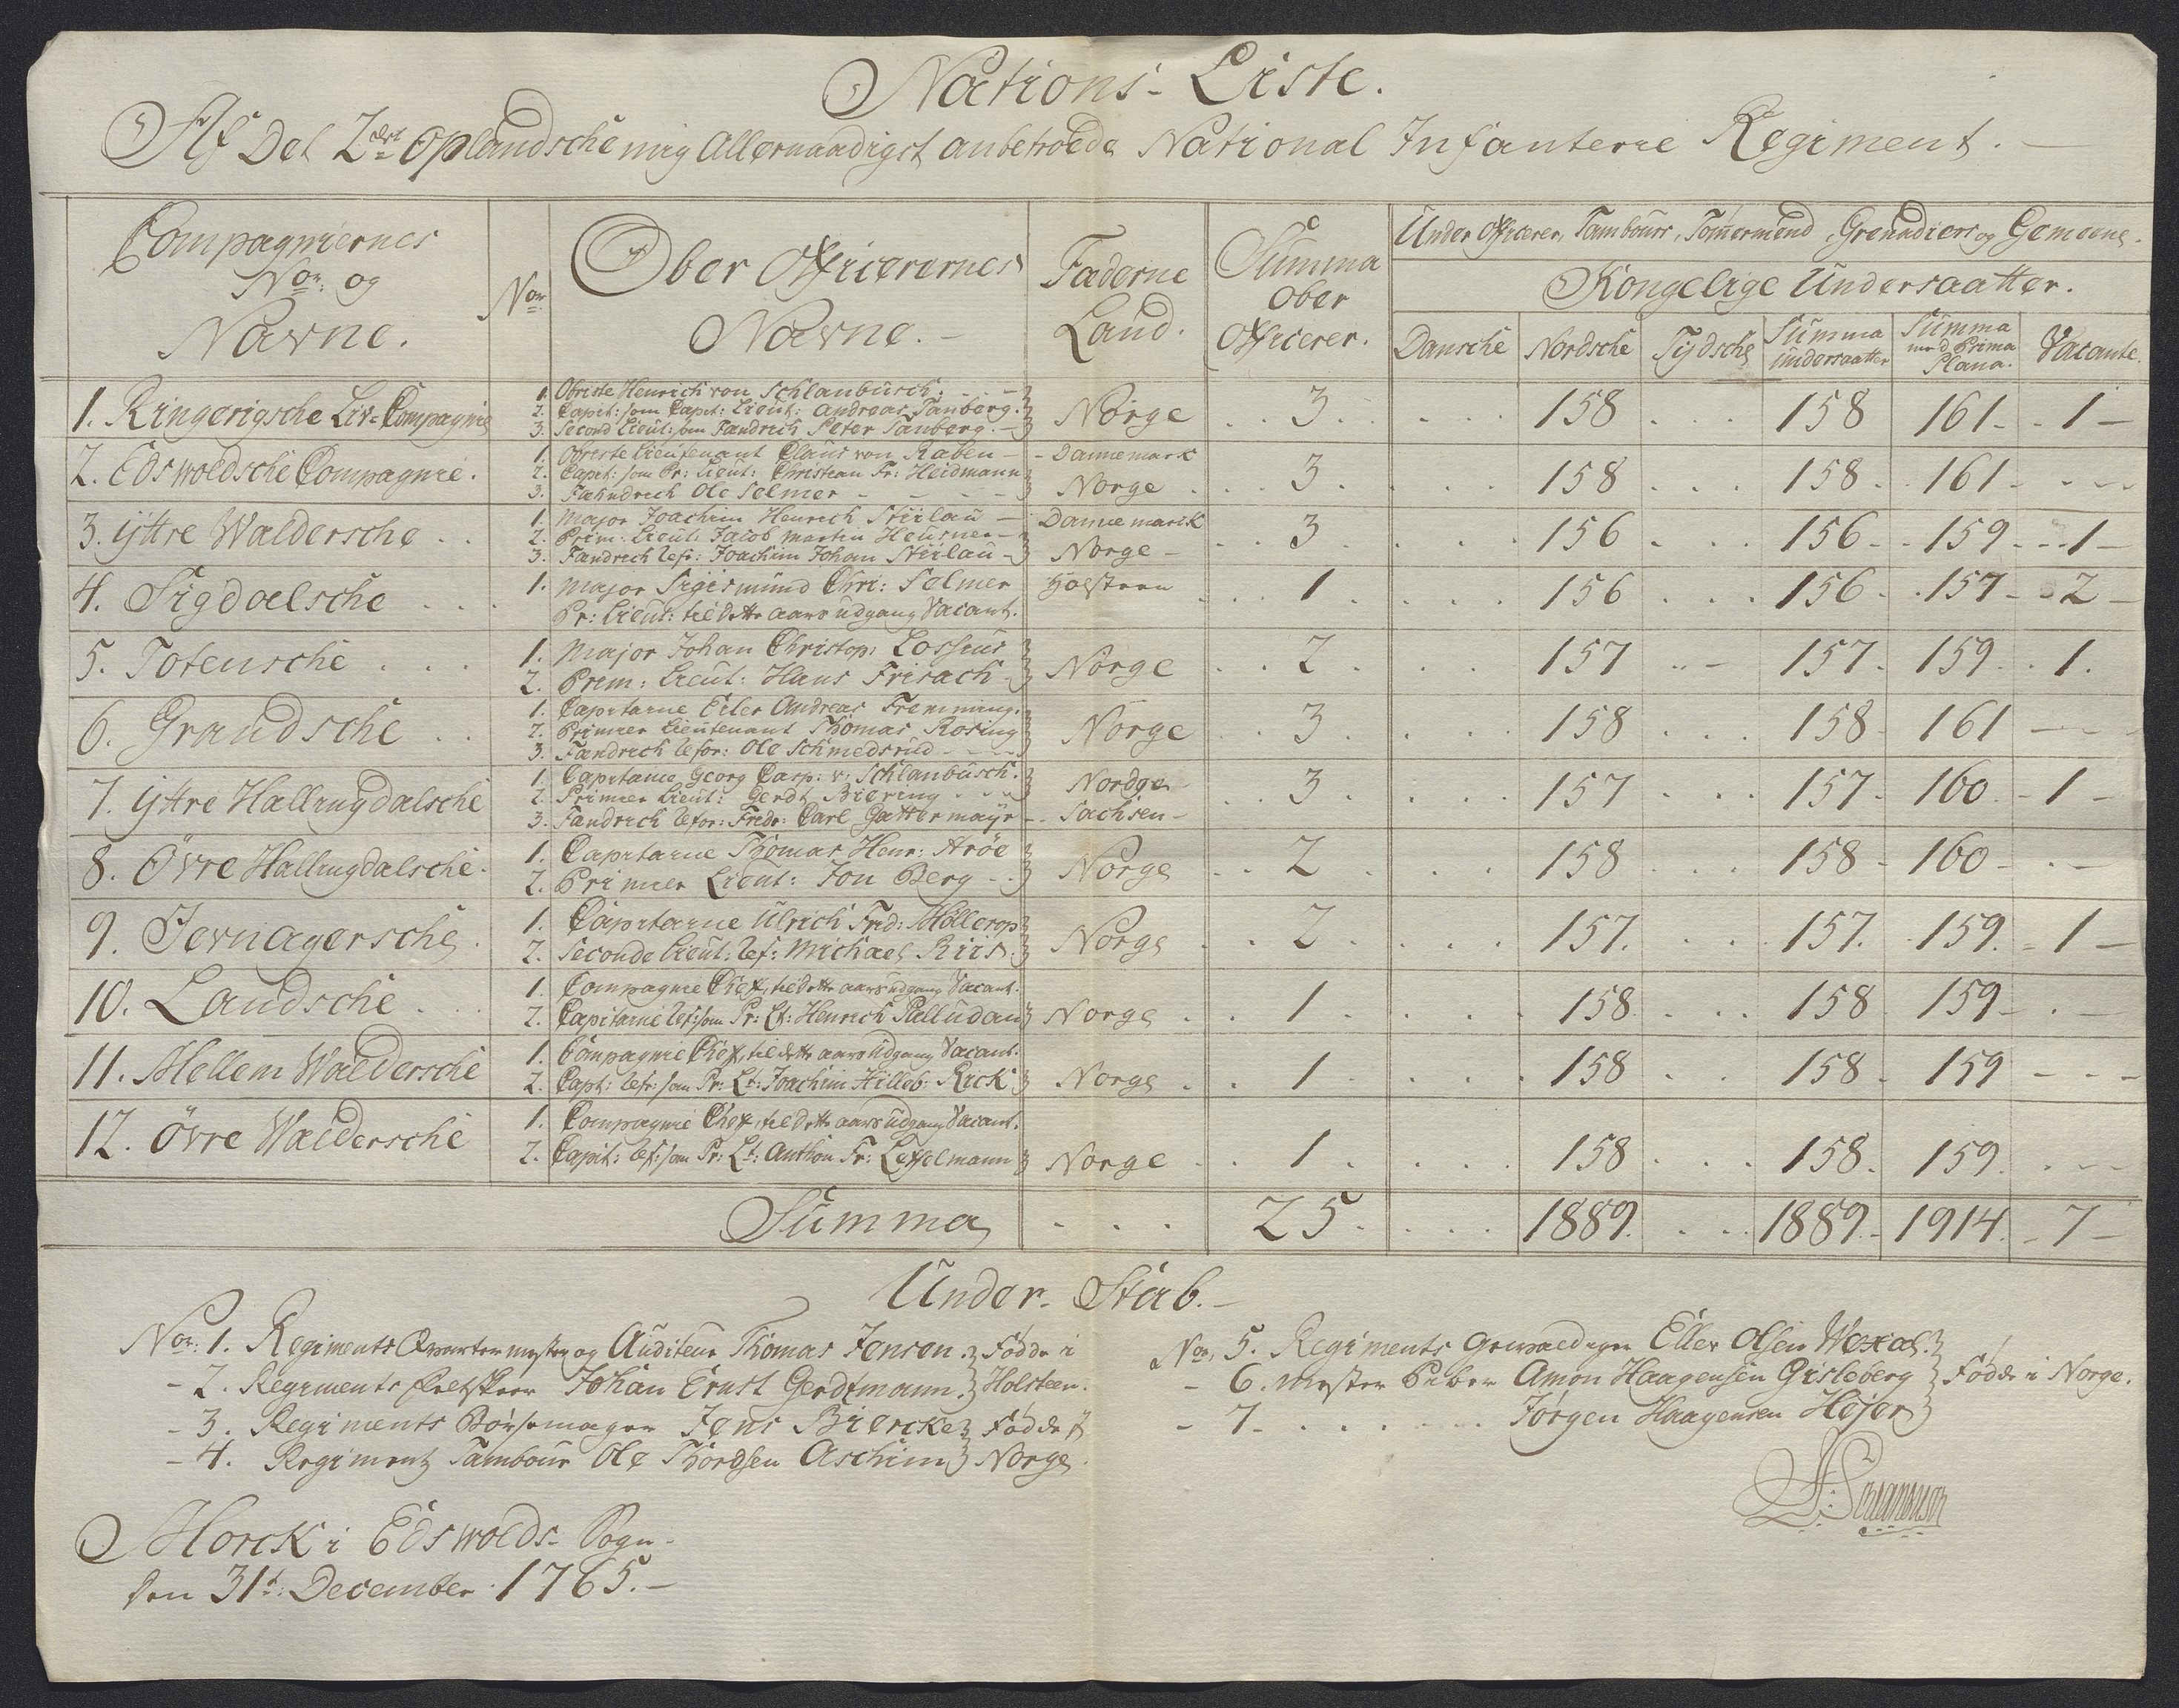 Nations-Liste.
Af Det 2det Oplandsche mig Allernaadigst anbetroede National Infanterie Regiment.
Compagniernes Nor: og Navne.
Nor
Ober Officerernes Navne.
Fæderne Land.
Summa Ober Officerer.
Under Officerer, Tambours, Tömmermænd, Grenadiers og Gemeene.
Kongelige Undersaatter.
Dansche Nordsche Tydsche Summa undersaatter Summa med Prima Plana. Vacante.
1. Ringerigsche Liv-Compagnie
1. Obriste Henrich von Schlanbusch.
2. Capit: som Capit: Lieut: Andreas Tanberg.
3. Second Lieut: som Fændrich Peter Tanberg.
Norge 3 158 158 161 1
2. Edswoldsche Compagnie.
1. Obriste Lieutenant Claus von Raben Dannemark
2. Capit: som Pr: Lieut: Christian Fr: Heidmann
3. Fæhndrich Ole Selmer
Norge 3 158 158 161
3. Yttre Waldersche
1. Major Joachim Henrich Stiilau Dannemarck
2. Prim: Lieut: Jacob Martin Heusner
3. Fændrich Refr: Joachim Johan Stiilau
Norge 3 156 156 159 1
4. Sigdoelsche
1. Major Sigismund Chri: Selmer Holsteen 1 156 156 157 2
Pr: Lieut: til dette aars udgang Vacant.
5. Totensche
1. Major Johan Christop: Lossius
2. Prem: Lieut: Hans Frisach
Norge 2 157 157 159 1.
6. Grandsche
1. Capitaine Eiler Andreas Fremming.
2. Primier Lieutenant Thomas Rosing
3. Fændrich Refor: Ole Schmedsrud
Norge 3 158 158 161
7. Yttre Hallingdalsche
1. Capitaine Georg Casp: v: Schlanbusch.
2. Primier Lieut: Gerdt Biering
Nordge 3 157 157 160 1
3. Fændrich Refor: Fredr: Carl Gattermayr Sachsen
8. Övre Hallingdalsche.
1. Capitaine Thomas Henr: Aröe
2. Primier Lieut: Jon Berg
Norge 2 158 158 160
9. Jevnagersche
1. Capitaine Ulrich Frid: Möllerop
2. Seconde Lieut: Ref: Michael Riis
Norge 2 157. 157. 159. 1
10. Landsche
1. Compagnie Cheff, til dette aars udgang Vacant.
2. Capitaine Ref: som Pr: Lt: Henrich Palludan Norge 1 158 158 159
11. Mellem Waldersche
1. Compagnie Cheff, til dette aars Udgang Vacant.
2. Capt: Refr: som Pr: Lt: Joachim Hilleb: Rick Norge 1 158 158 159
12. Övre Waldersche
1. Compagnie Cheff, til dette aars Udgang Vacant.
2. Capit: Ref: som Pr: Lt: Anthon Fr: Leffelmann Norge 1 158 158. 159.
Summa 25. 1889. 1889. 1914. 7
Under-Stab.
Nor: 1. Regiments Qvarteermester og Auditeur Thomas Jensen Födde i
- 2. Regiments Feltskeer Johan Ernst Gerdtmann Holsteen.
- 3. Regiments Börsemager Jens Biercke Födde i
- 4. Regiments Tambour Ole Thordsen Aschim Norge
Nor, 5. Regiments Gewaldiger Eller Olsen Woxal
- 6. Mester Piber Amon Haagensen Gisleberg Födde i Norge.
- 7. Jörgen Haagensen Höjer
Morck i Edswolds Sogn
den 31t: December 1765.